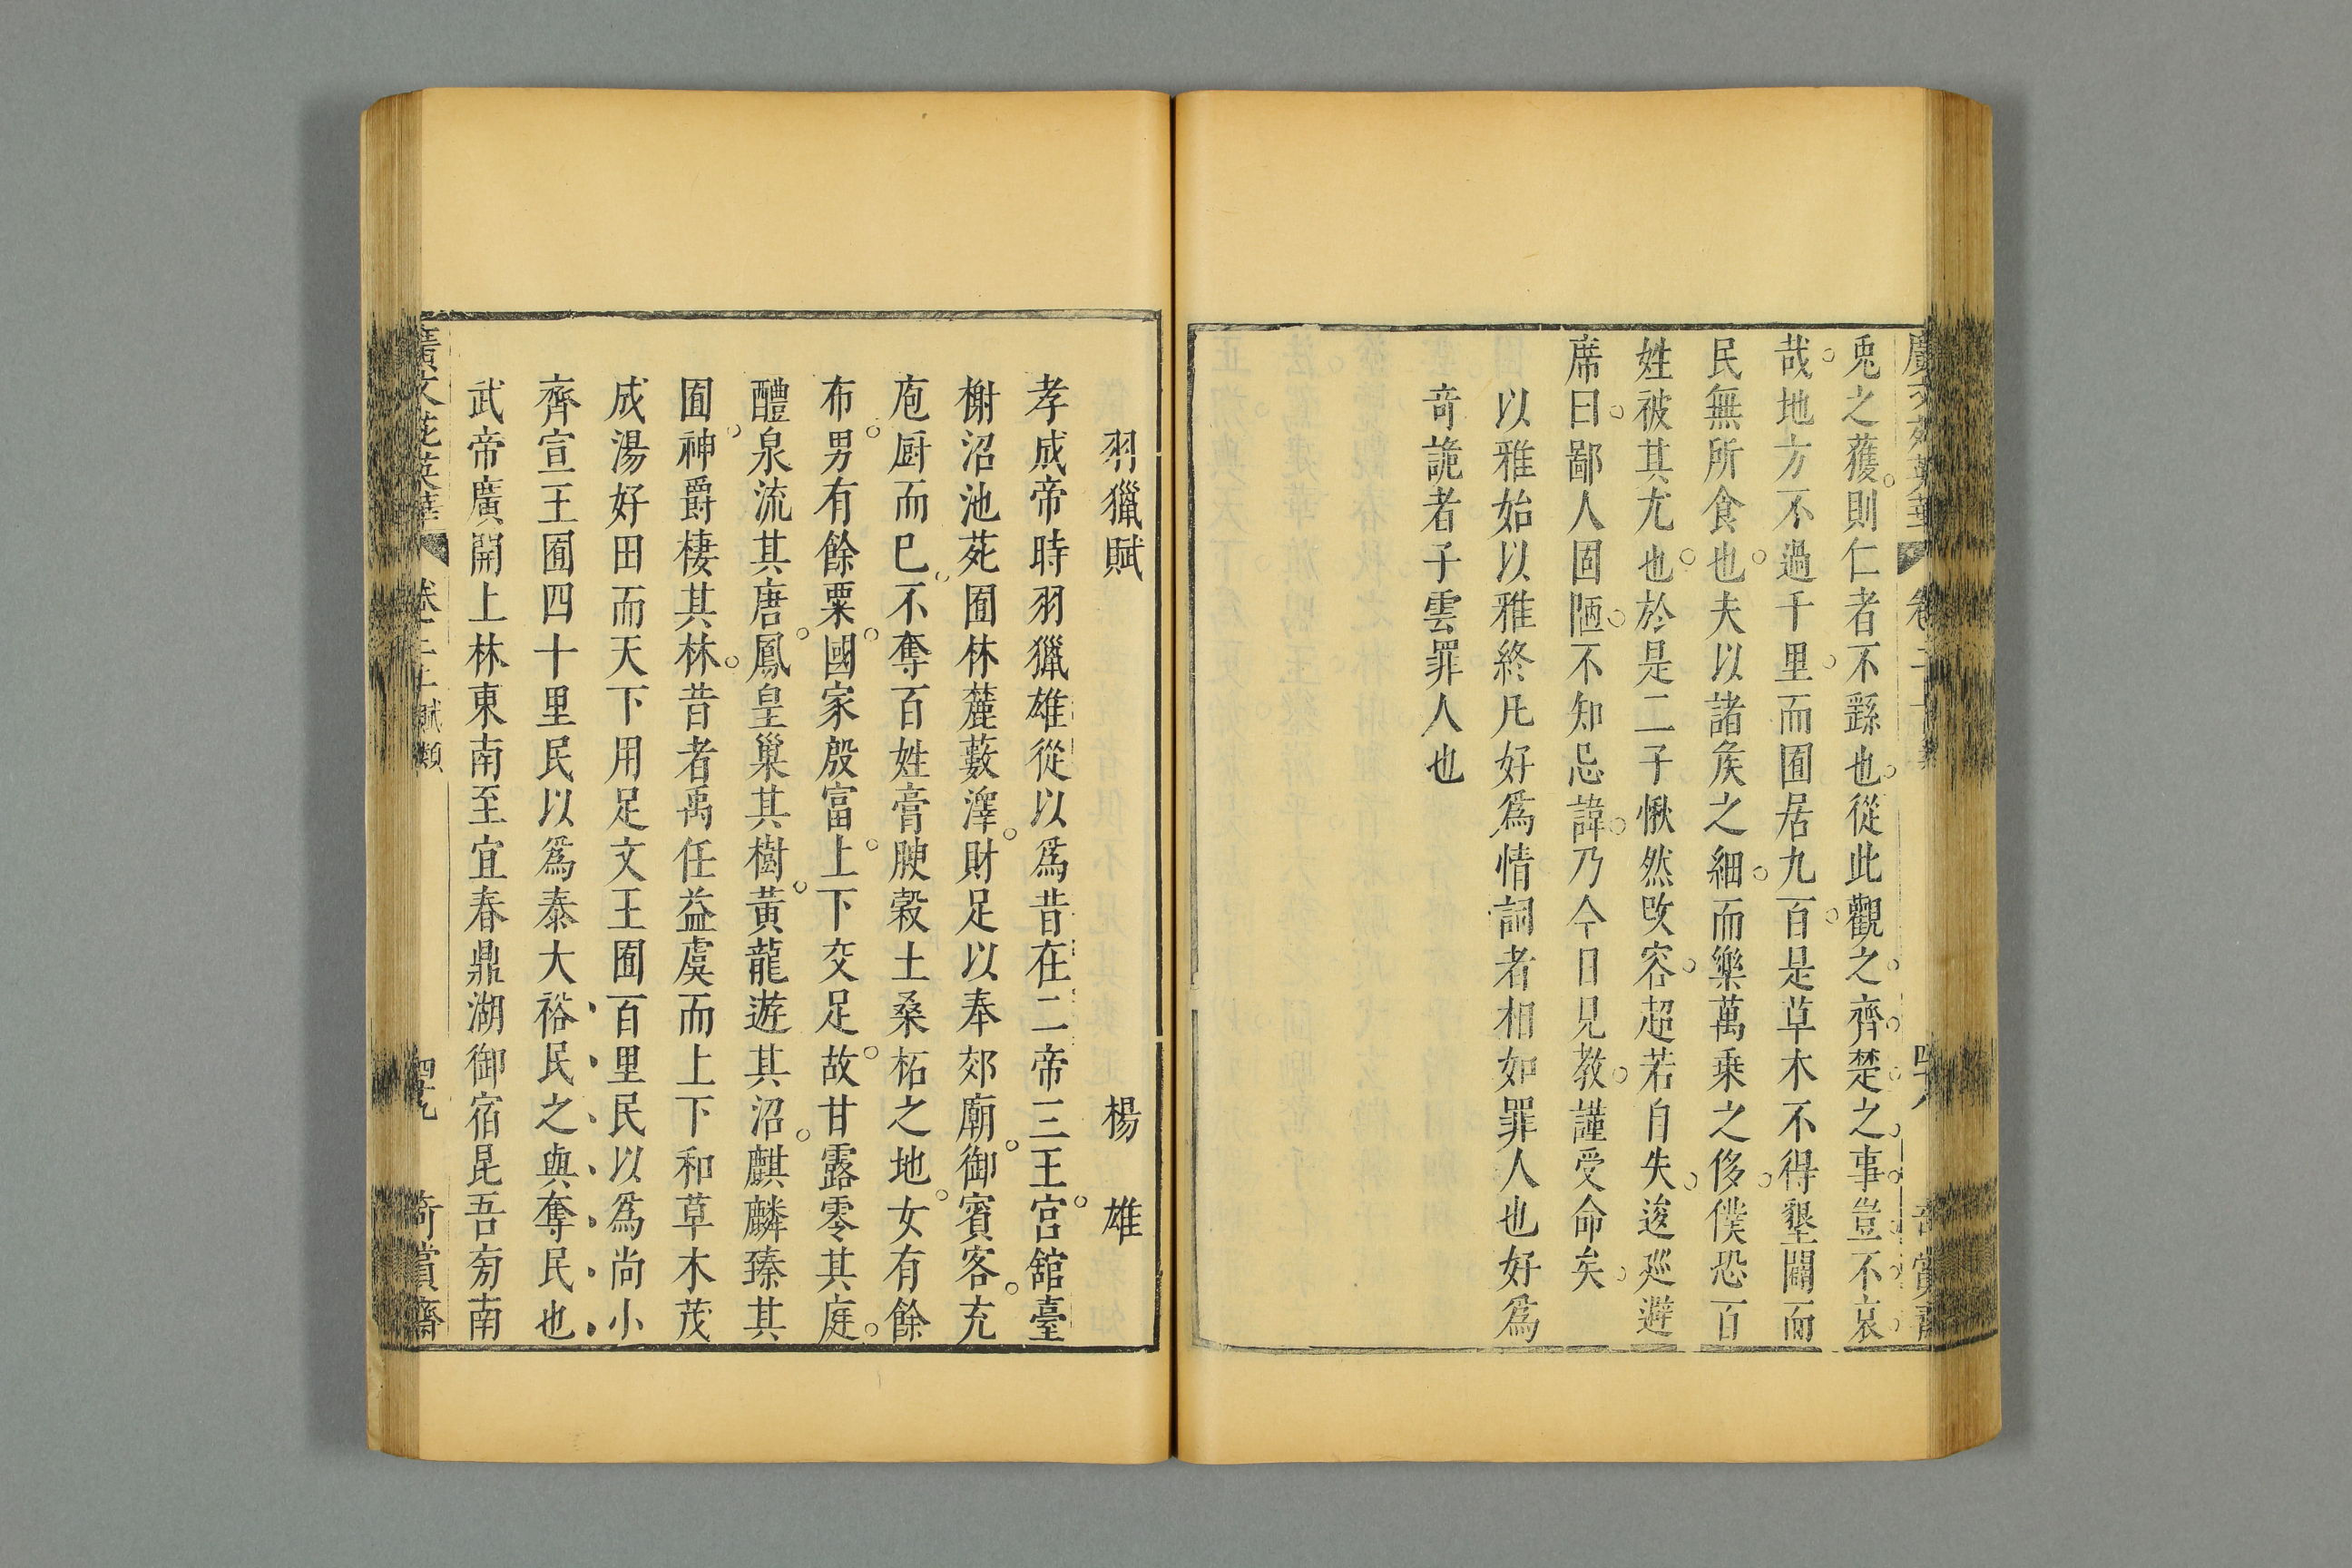 兎之獲則仁者不繇也從此觀之齊楚之事豈不哀
哉地方不過千里而囿居九百是草木不得墾闢而
民無所食也夫以諸矦之細而樂萬乗之侈僕恐百
姓被其尤也於是二子愀然改容超若自失逡廵避
席曰鄙人固陋不知忌諱乃今日見教謹受命矣
以雅始以雅終凡好爲情詞者相如罪人也好爲
奇詭者子雲罪人也
羽獵賦 楊雄
孝成帝時羽獵雄從以爲昔在二帝三王宮舘臺
榭沼池苑囿林麓藪澤財足以奉郊廟御賓客充
庖厨而已不奪百姓膏腴榖土桑柘之地女有餘
布男有餘粟國家殷富上下交足故甘露零其庭
醴泉流其唐鳳皇巢其樹黃龍遊其沼麒麟臻其
囿神爵棲其林昔者禹任益虞而上下和草木茂
成湯好田而天下用足文王囿百里民以爲尚小
齊宣王囿四十里民以爲泰大裕民之與奪民也
武帝廣開上林東南至宜春鼎湖御宿昆吾旁南
廣文苑英華 卷二十 賦類 四九 奇賞齋